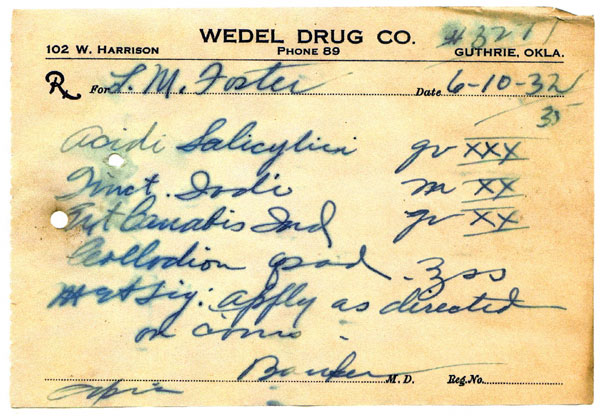 WEDEL DRUG CO. # 3271
102 W. HARRISON PHONE 89 GUTHRIE, OKLA.
Rx For L. M. Foster Date 6-10-32
35
Acidi Salicylici gr xxx
Tinct. Iodi m xx
Ext Canabis Ind gr xx
Collodion qsad ʒss
M et Sig: apply as directed
on corns.
M.D. Reg. No.